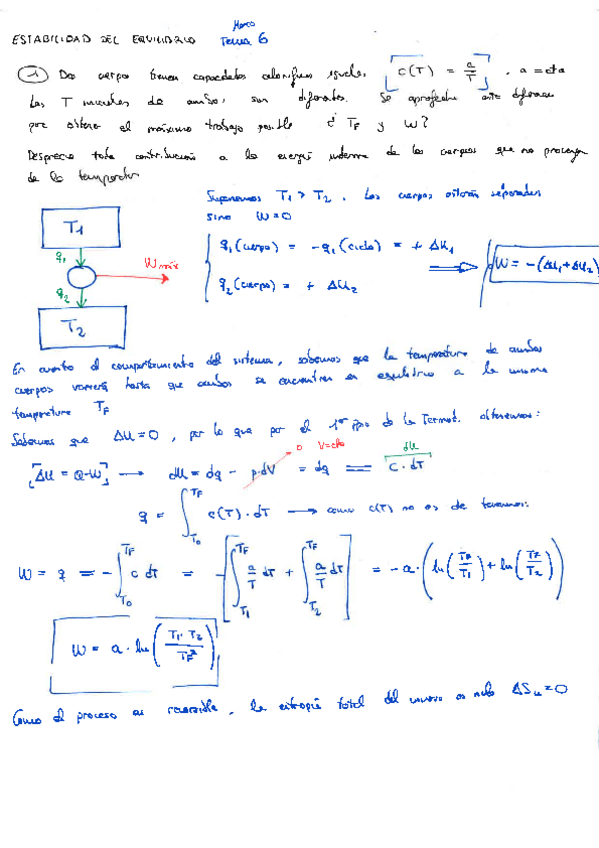 Marco
ESTABILIDAD DEL EQUILIBRIO Tema 6
① Dos cuerpos tienen capacidades caloríficas iguales [c(T) = a/T], a = cta
Las T iniciales de ambos son diferentes. Se aprovecha esta diferencia
para obtener el máximo trabajo posible ¿ T_F y W?
Desprecie toda contribución a la energía interna de los cuerpos que no provenga
de la temperatura
Suponemos T₁ > T₂. Los cuerpos estarán separados
sino W=0
T₁
q₁
W máx
q₂
T₂
q₁(cuerpo) = -q₁(ciclo) = + ΔU₁
q₂(cuerpo) = + ΔU₂
⟹ W = -(ΔU₁+ΔU₂)
En cuanto al comportamiento del sistema, sabemos que la temperatura de ambos
cuerpos variará hasta que ambos se encuentren en equilibrio a la misma
temperatura T_F
Sabemos que ΔU=0, por lo que por el 1er ppio de la Termod. obtenemos:
[ΔU = Q-W] → dU = dq - p·dV = dq = C·dT
0 V=cte
dU
q = ∫_{T₀}^{T_F} c(T)·dT → como c(T) no es de
W = q = -∫_{T₀}^{T_F} c dT = -[∫_{T₁}^{T_F} a/T dT + ∫_{T₂}^{T_F} a/T dT] = -a·(ln(T_F/T₁) + ln(T_F/T₂))
W = a·ln(T₁·T₂/T_F²)
Como el proceso es reversible, la entropía total del universo es nula ΔS_u=0